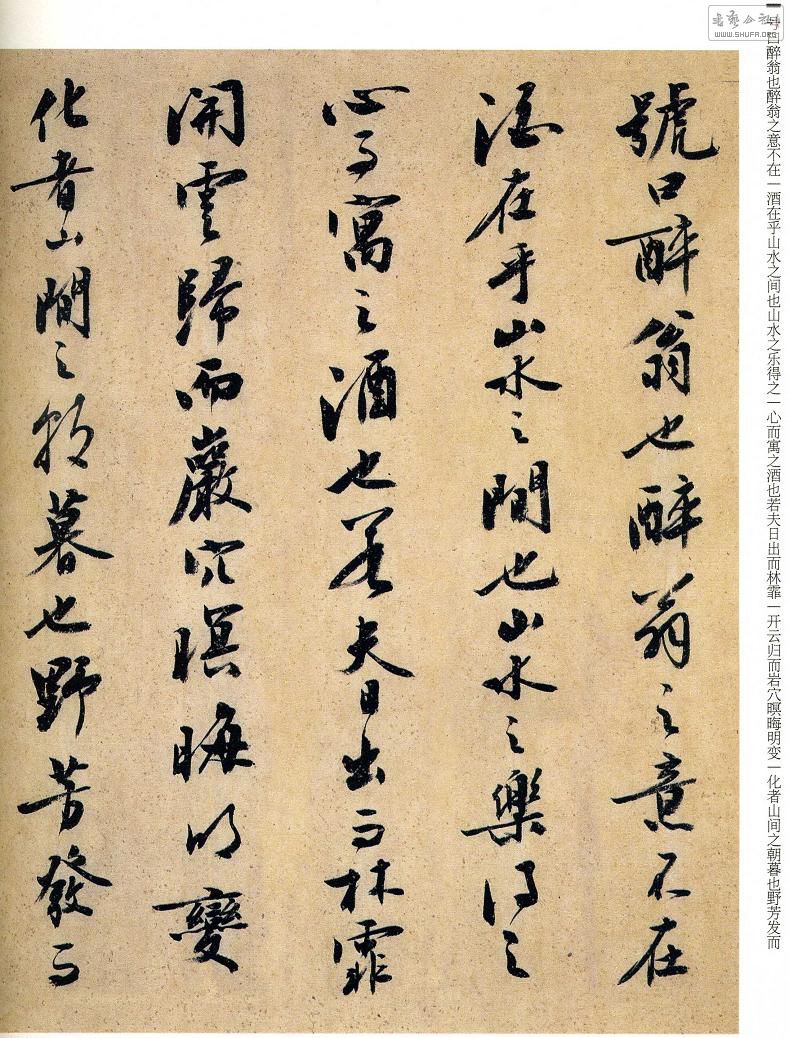 书艺公社
WWW.SHUFA.ORG
一号曰醉翁也醉翁之意不在一酒在乎山水之间也山水之乐得之一心而寓之酒也若夫日出而林霏一开云归而岩穴暝晦明变一化者山间之朝暮也野芳发而
號曰醉翁也醉翁之意不在
酒在乎山水之間也山水之樂得之
心而寓之酒也若夫日出而林霏
開雲歸而巖穴暝晦明變
化者山間之朝暮也野芳發而